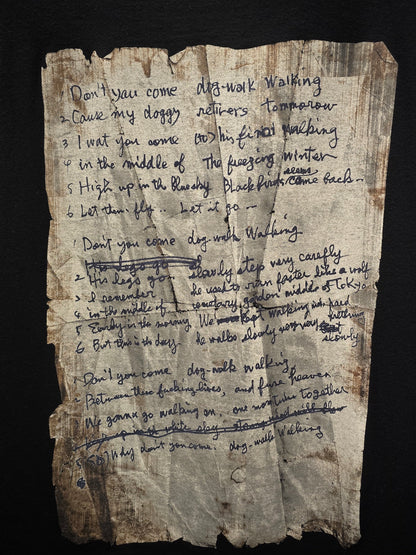 1 Don't you come dog-walk Walking
2 Cause my doggy retirers tommorow
3 I wat you come (to) his final walking
4 in the middle of The freezing winter
5 High up in the Bluesky Blackbirds seems come back --
6 Let them fly.. Let it go --
1 Don't you come dog-walk Walking
2 His legs got slowly step very carefly
3 I remember he used to run faster like a wolf
4 in the middle of cemetary, garden middle of Tokyo
5 Early in the morning. We walking with hard nothing
6 But this is the day he walks slowly very very slowly
1 Don't you come, dog-walk walking,
2 Between these fucking lives, and fure heaven
We gonna go walking on, one more time together
5 (So) Why don't you come, dog-walk Walking
6